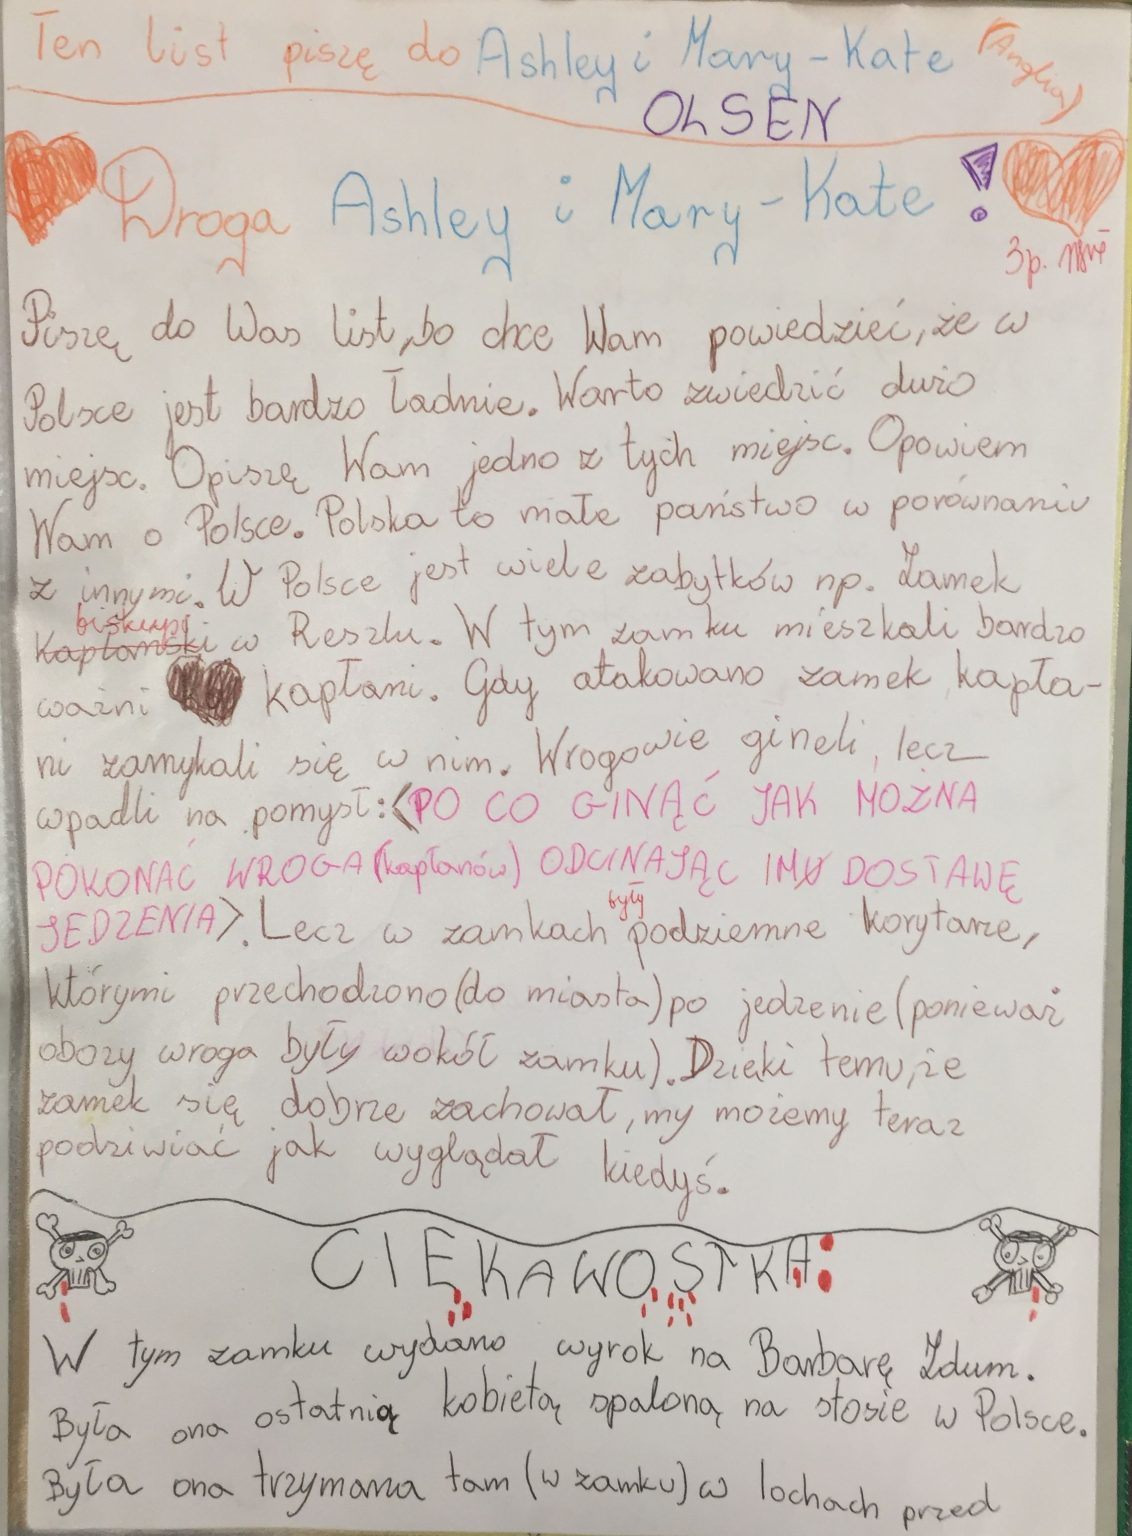 Ten list piszę do Ashley i Mary-Kate (Anglia)
OLSEN
Droga Ashley i Mary-Kate!
3p.
Piszę do Was list, bo chce Wam powiedzieć, że w
Polsce jest bardzo ładnie. Warto zwiedzić dużo
miejsc. Opiszę Wam jedno z tych miejsc. Opowiem
Wam o Polsce. Polska to małe państwo w porównaniu
z innymi. W Polsce jest wiele zabytków np. Zamek
biskupi
Kapłański w Reszlu. W tym zamku mieszkali bardzo
ważni kapłani. Gdy atakowano zamek kapła-
ni zamykali się w nim. Wrogowie gineli, lecz
wpadli na pomysł: <PO CO GINĄĆ JAK MOŻNA
POKONAĆ WROGA (kapłanów) ODCINAJĄC IM DOSTAWĘ
JEDZENIA>. Lecz w zamkach podziemne korytarze,
były
którymi przechodzono (do miasta) po jedzenie (ponieważ
obozy wroga były wokół zamku). Dzięki temu, że
zamek się dobrze zachował, my możemy teraz
podziwiać jak wyglądał kiedyś.
CIEKAWOSTKA:
W tym zamku wydano wyrok na Barbarę Zdum.
Była ona ostatnią kobietą spaloną na stosie w Polsce.
Była ona trzymana tam (w zamku) w lochach przed